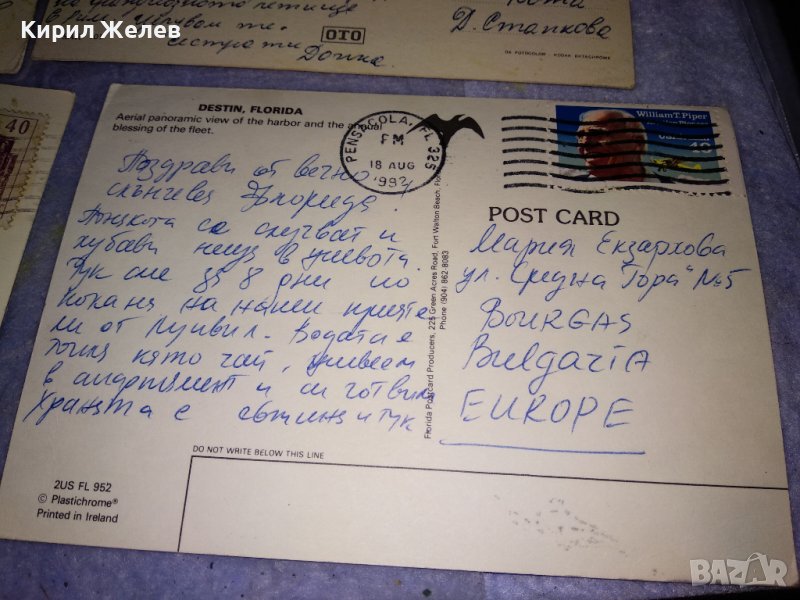 Кирил Желев
на
в Рим. Целувам те.
сестра ти
Донка
ОТО
Д. Станкова
DA FOTOCOLOR - KODAK EKTACHROME
40
DESTIN, FLORIDA
Aerial panoramic view of the harbor and the annual
blessing of the fleet.
PENSACOLA, FL 325
PM
18 AUG
1992
William T. Piper
Поздрави от вечно
слънчева Флорида!
Понякога се случват и
хубави неща в живота.
Тук сме за 8 дни по
покана на наши прияте
ли от Луивил. Водата е
топла като чай, живеем
в апартамент и си готвим
храната е евтина и тук
Florida Postcard Producers, 225 Green Acres Road, Fort Walton Beach,
Phone (904) 862-8083
POST CARD
Мария Екзархова
ул. "Средна Гора" №5
BOURGAS
Bulgaria
EUROPE
DO NOT WRITE BELOW THIS LINE
2US FL 952
© Plastichrome®
Printed in Ireland
BAZAR